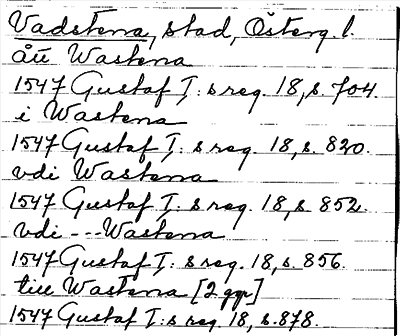 Vadstena, stad, Österg. l.
ått Wastena
1547 Gustaf I: s reg. 18, s. 704.
i Wastena
1547 Gustaf I: s reg. 18, s. 820.
vdi Wastena
1547 Gustaf I: s reg. 18, s. 852.
vdi --- Wastena
1547 Gustaf I: s reg. 18, s. 856.
till Wastena [2 ggr]
1547 Gustaf I: s reg. 18, s. 878